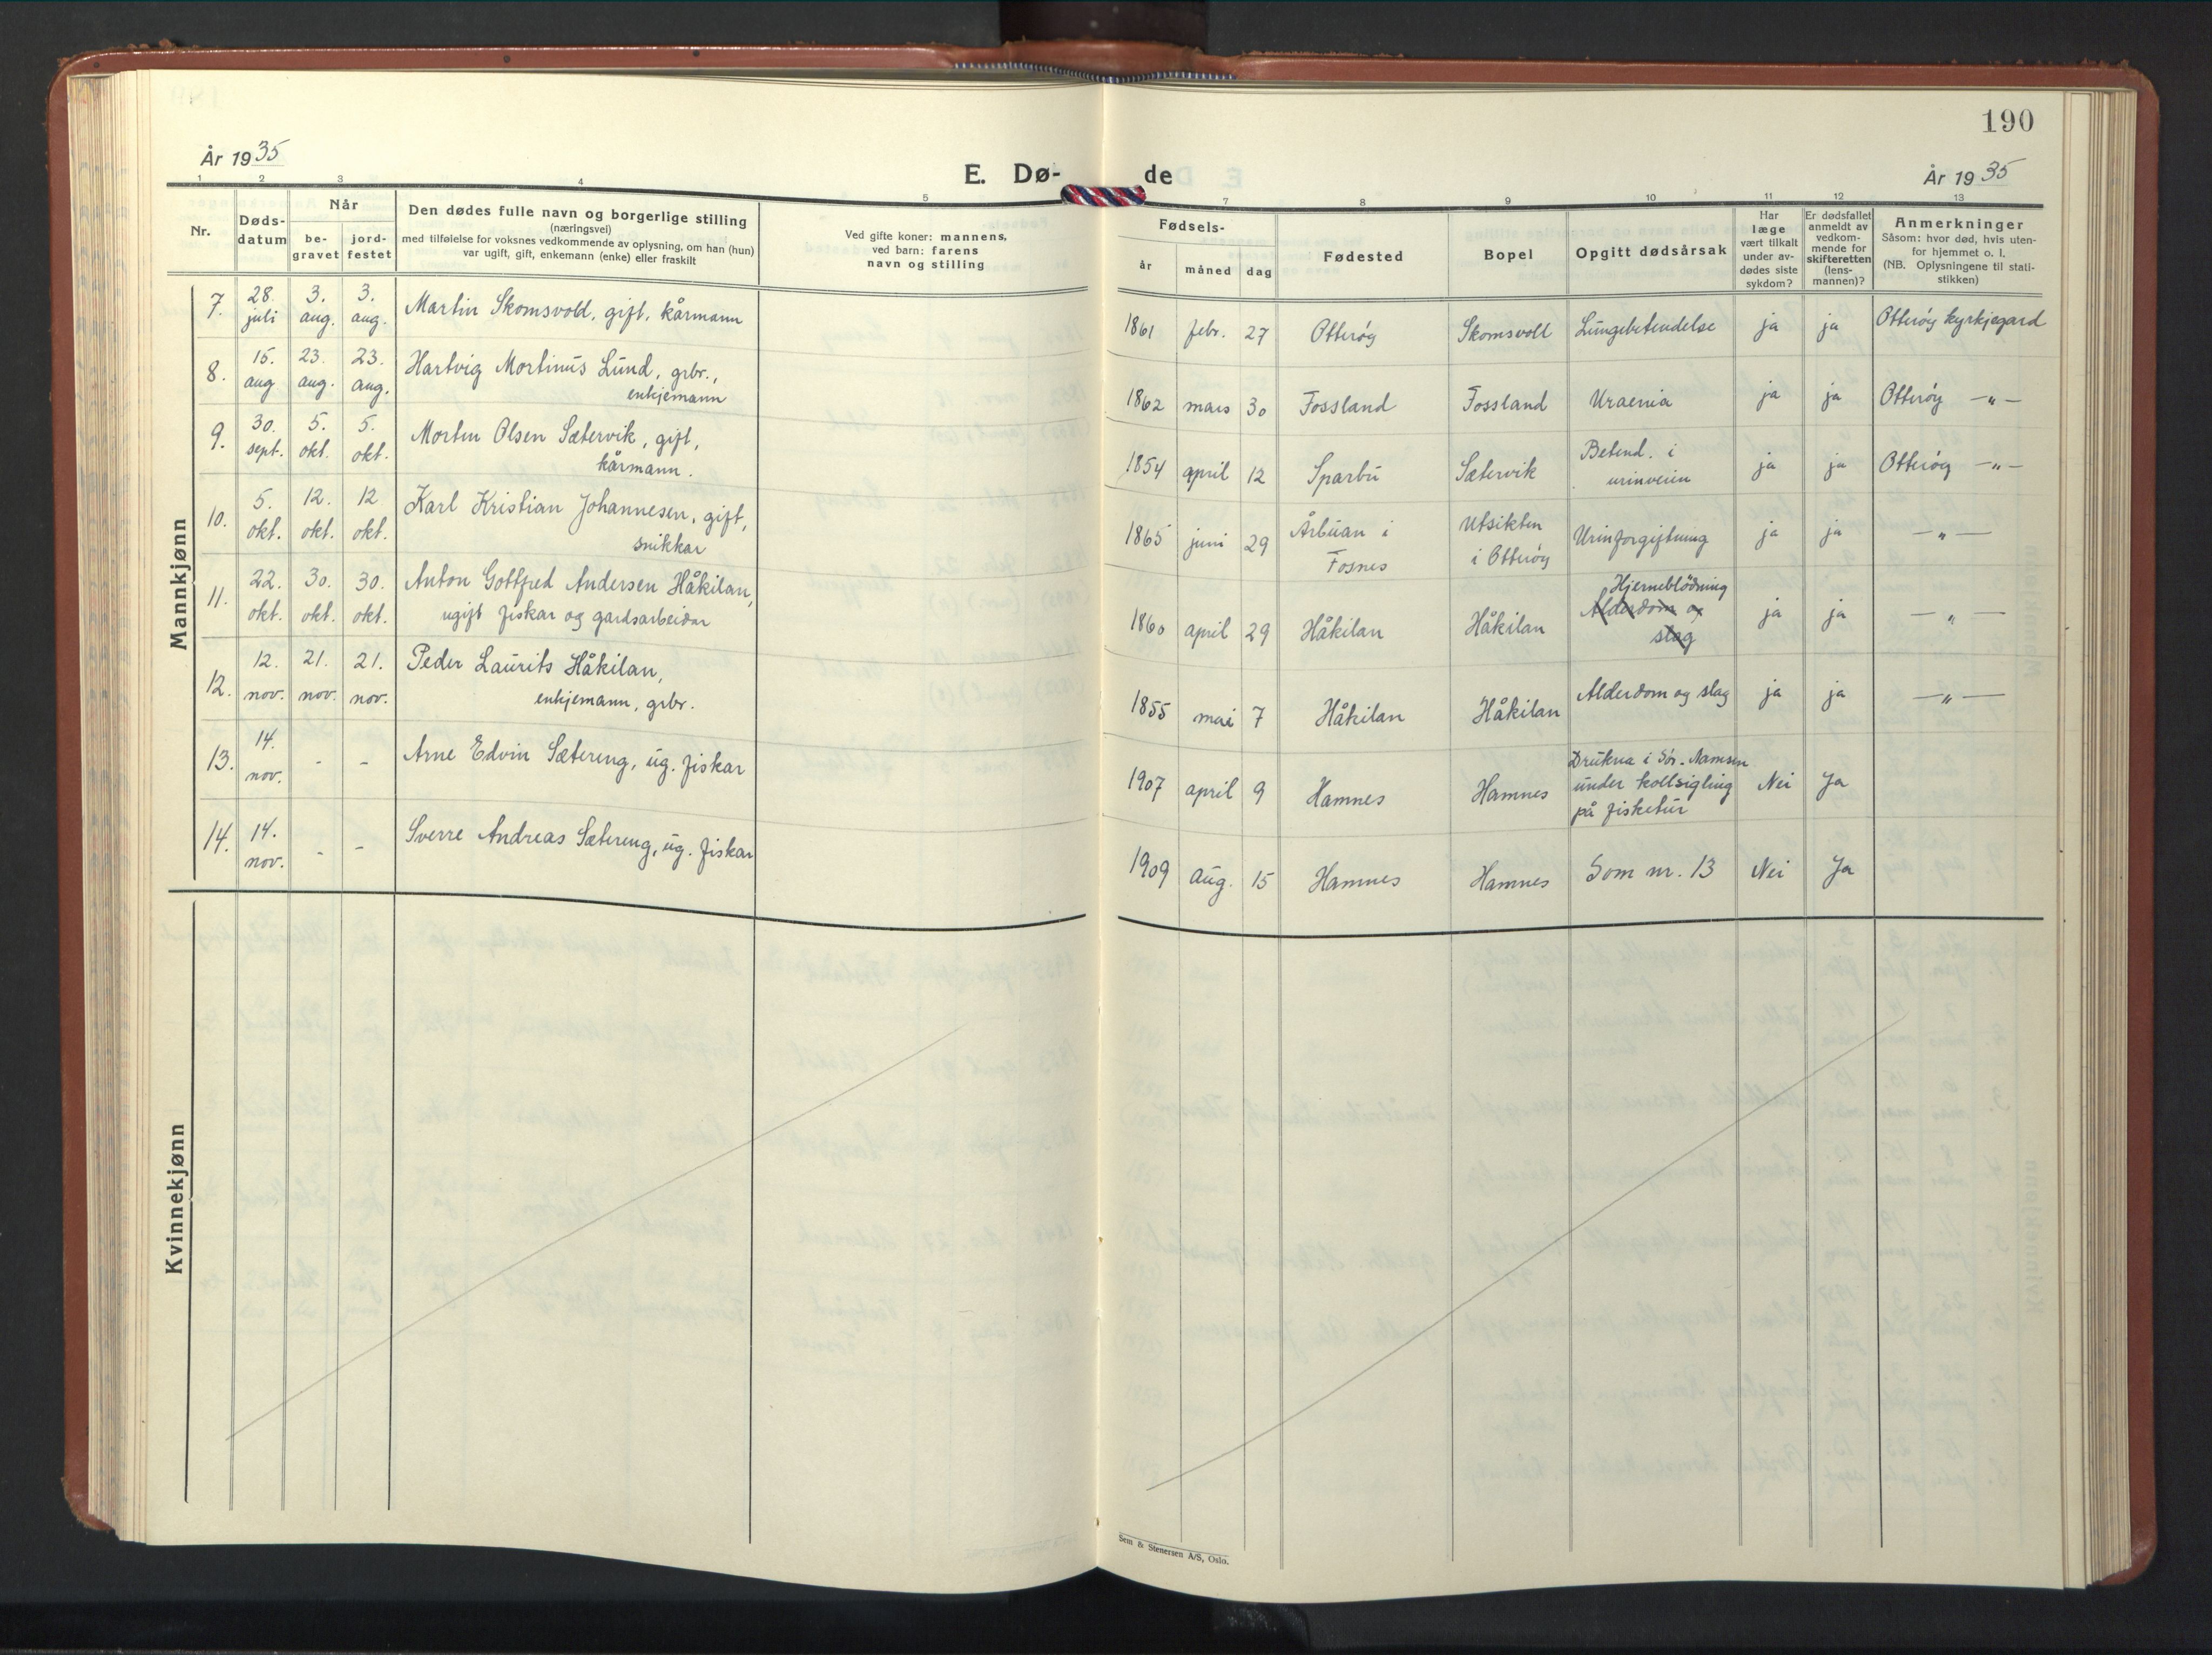 190
År 1935
E. Dø-
de
År 1935
1 2 3 4 5
7 8 9 10 11 12 13
Nr.
Døds-
datum
Når
be-
gravet
jord-
festet
Den dødes fulle navn og borgerlige stilling
(næringsvei)
med tilføielse for voksnes vedkommende av oplysning, om han (hun)
var ugift, gift, enkemann (enke) eller fraskilt
Ved gifte koner: mannens,
ved barn: farens
navn og stilling
Fødsels-
år
måned
dag
Fødested
Bopel
Opgitt dødsårsak
Har
læge
vært tilkalt
under av-
dødes siste
sykdom?
Er dødsfallet
anmeldt av
vedkom-
mende for
skifteretten
(lens-
mannen)?
Anmerkninger
Såsom: hvor død, hvis uten-
for hjemmet o. l.
(NB. Oplysningene til stati-
stikken)
Mannkjønn
7. 28. juli 3. aug. 3. aug. Martin Skomsvold, gift, kårmann
1861 febr. 27 Otterøy Skomsvoll Lungebetendelse ja ja Otterøy kyrkjegard
8. 15. aug 23. aug. 23. aug. Hartvig Mortinus Lund, grbr.,
enkjemann
1862 mars 30 Fossland Fossland Uraemia ja ja Otterøy -"-
9. 30. sept. 5. okt. 5. okt. Morten Olsen Sætervik, gift,
kårmann.
1854 april 12 Sparbu Sætervik Betend. i
urinveien ja ja Otterøy -"-
10. 5. okt. 12. okt. 12 okt. Karl Kristian Johannesen, gift,
snikkar
1865 juni 29 Årbuan i
Fosnes Utsikten
i Otterøy Urinforgiftning ja ja -"-
11. 22. okt. 30. okt. 30. okt. Anton Gottfred Andersen Håkilan,
ugift fiskar og gardsarbeidar
1860 april 29 Håkilan Håkilan Hjerneblödning
Alderdom og
slag ja ja -"-
12. 12. nov. 21. nov. 21. nov. Peder Laurits Håkilan,
enkjemann, grbr.
1855 mai 7 Håkilan Håkilan Alderdom og slag ja ja -"-
13. 14. nov. - - Arne Edvin Sætereng, ug. fiskar
1907 april 9 Hamnes Hamnes Drukna i Sør-Namsen
under kollsigling
på fisketur Nei Ja
14. 14. nov. - - Sverre Andreas Sætereng, ug. fiskar
1909 aug. 15 Hamnes Hamnes Som nr. 13 Nei Ja
Kvinnekjønn
Sem & Stenersen A/S, Oslo.